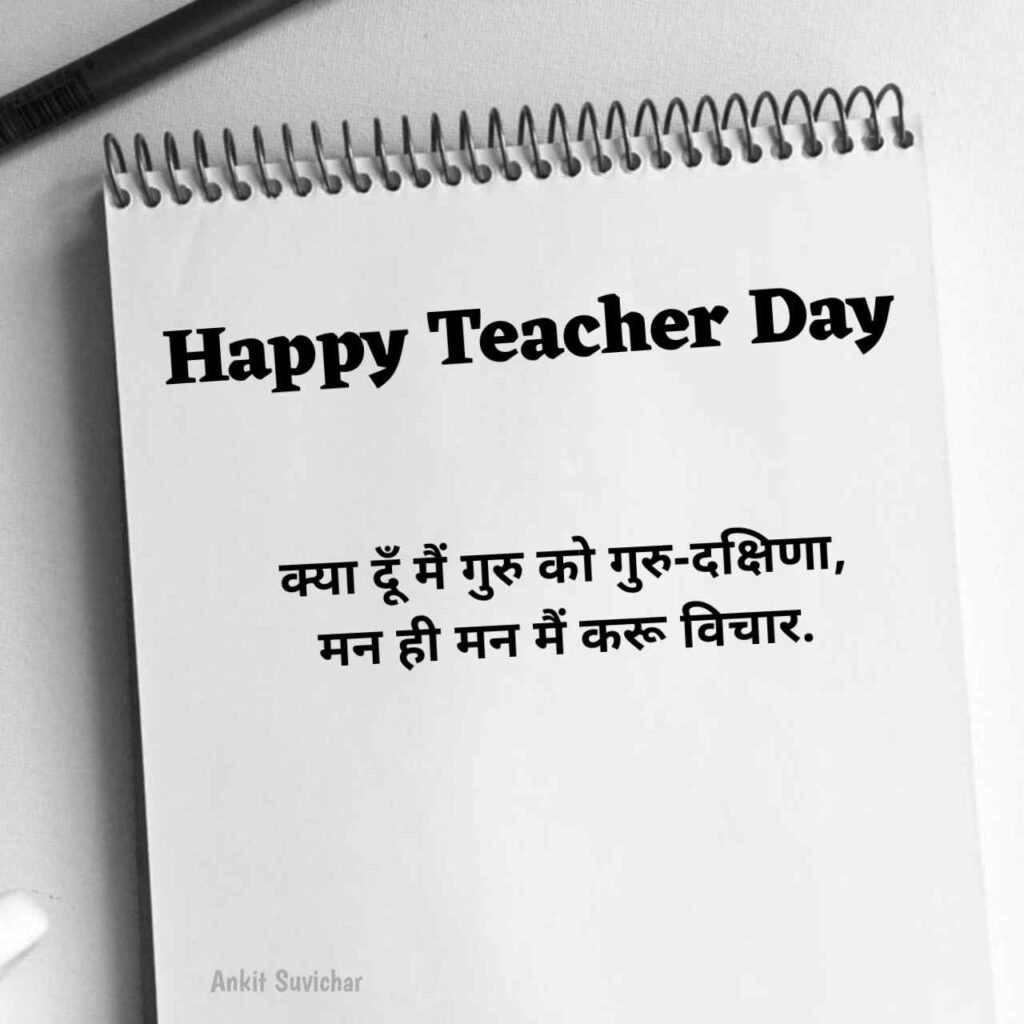 Happy Teacher Day
क्या दूँ मैं गुरु को गुरु-दक्षिणा,
मन ही मन मैं करू विचार.
Ankit Suvichar